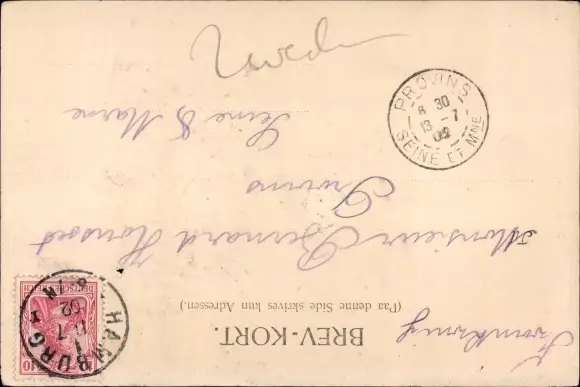 BREV-KORT.
(Paa denne Side skrives kun Adressen.)
Monsieur Bernard
Provins
Seine & Marne
PROVINS
8 30
13 - 7
02
SEINE ET MNE
HAMBURG 1
7
02
DEUTSCHES REICH
10